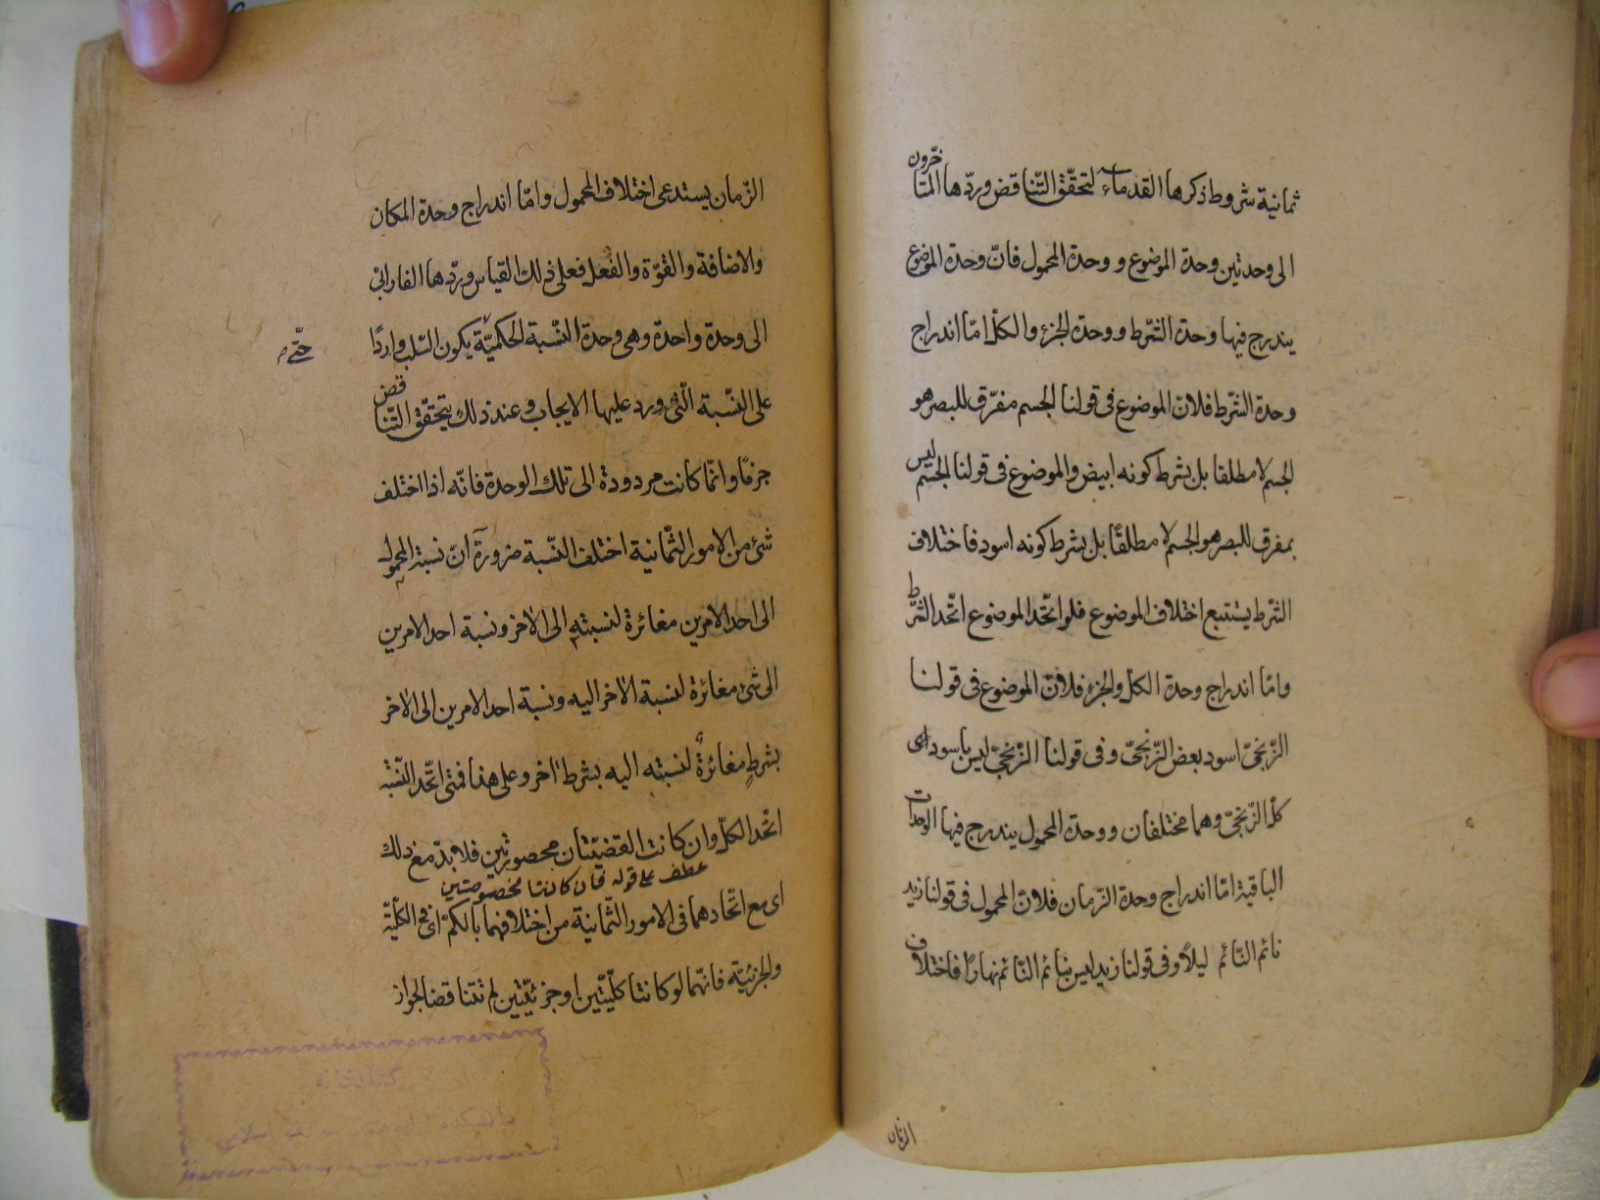 ثمانية شروط ذكرها القدماء لتحقّق التّناقض وردّها المتاخّرون
الى وحدتين وحدة الموضوع و وحدة المحمول فانّ وحدة الموضوع
يندرج فيها وحدة الشّرط و وحدة الجزء والكلّ امّا اندراج
وحدة الشّرط فلان الموضوع فى قولنا الجسم مفرّق للبصر هو
الجسم لا مطلقا بل بشرط كونه ابيض والموضوع فى قولنا الجسم ليس
بمفرق للبصر هو الجسم لا مطلقًا بل بشرط كونه اسود فاختلاف
الشّرط يستتبع اختلاف الموضوع فلو اتّحد الموضوع اتّحد الشّرط
وامّا اندراج وحدة الكلّ والجزء فلانّ الموضوع فى قولنا
الزّنجىّ اسود بعض الزّنجىّ وفى قولنا الزّنجىّ ليس باسود اى
كلّ الزّنجىّ وهما مختلفان و وحدة المحمول يندرج فيها الوحدات
الباقية امّا اندراج وحدة الزّمان فلانّ المحمول فى قولنا زيد
نائم النّائم ليلاً وفى قولنا زيد ليس بنائم النّائم نهارًا فاختلاف
الزمان
الزّمان يستدعى اختلاف المحمول وامّا اندراج وحدة المكان
والاضافة والقوّة والفعل فعلى ذلك القياس وردّها الفارابىّ
الى وحدة واحدة وهى وحدة النّسبة الحكميّة يكون السّلب واردًا
حتّى
على النّسبة الّتى ورد عليها الايجاب وعند ذلك يتحقّق التّناقض
جزمًا وانّما كانت مردودة الى تلك الوحدة فانّه اذا اختلف
شئ من الامور الثّمانية اختلف النّسبة ضرورة انّ نسبة المحمول
الى احد الامرين مغائرة لنسبته الى الآخر ونسبة احد الامرين
الى شئ مغائرة لنسبة الآخر اليه ونسبة احد الامرين الى الآخر
بشرطٍ مغائرة لنسبته اليه بشرط اخر وعلى هذا فمتى اتّحد النّسبة
اتّحد الكلّ وان كانت القضيّتان محصورتين فلا بدّ مع ذلك
عطف على قوله فان كانتا مخصوصتين
اى مع اتّحادهما فى الامور الثّمانية من اختلافهما بالكمّ اى فى الكلّيّة
والجزئيّة فانّهما لو كانتا كلّيّتين او جزئيّتين لم تتناقضا لجواز
كتابخانه